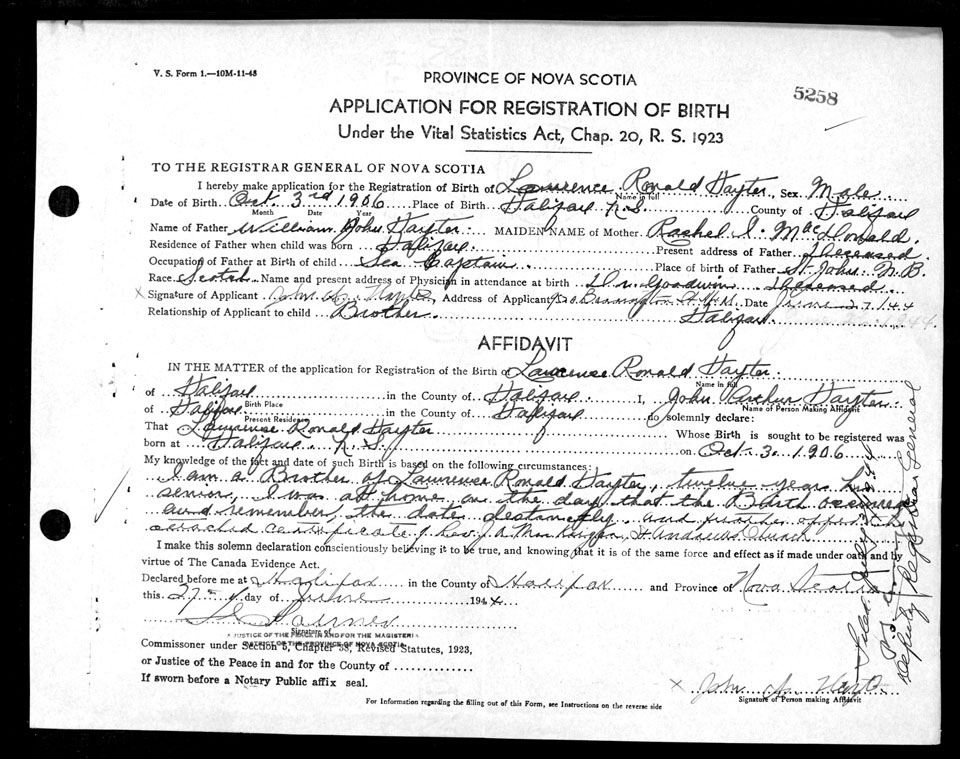 V. S. Form 1.—10M-11-43
PROVINCE OF NOVA SCOTIA
5258
APPLICATION FOR REGISTRATION OF BIRTH
Under the Vital Statistics Act, Chap. 20, R. S. 1923
TO THE REGISTRAR GENERAL OF NOVA SCOTIA
I hereby make application for the Registration of Birth of Lawrence Ronald Hayter Sex Male
Name in full
Date of Birth Oct. 3rd 1906 Place of Birth Halifax N.S. County of Halifax
Month Date Year
Name of Father William John Hayter MAIDEN NAME of Mother Rachel I. MacDonald
Residence of Father when child was born Halifax Present address of Father Deceased
Occupation of Father at Birth of child Sea Captain Place of birth of Father St. John N.B.
Race Scotch Name and present address of Physician in attendance at birth Dr. Goodwin Deceased
X Signature of Applicant John A. Hayter, Address of Applicant Date June 27/44
Relationship of Applicant to child Brother. Halifax
AFFIDAVIT
IN THE MATTER of the application for Registration of the Birth of Lawrence Ronald Hayter
Name in full
of Halifax in the County of Halifax I, John Arthur Hayter
Birth Place Name of Person Making Affidavit
of Halifax in the County of Halifax do solemnly declare:
Present Residence
That Lawrence Ronald Hayter Whose Birth is sought to be registered was
born at Halifax N.S. on Oct. 3. 1906
My knowledge of the fact and date of such Birth is based on the following circumstances:
I am a Brother of Lawrence Ronald Hayter, twelve years his
senior, I was at home on the day that the Birth occurred
and remember, the date distinctly and further
attached certificate of Rev. J. A. St Andrews Church
I make this solemn declaration conscientiously believing it to be true, and knowing that it is of the same force and effect as if made under oath and by
virtue of The Canada Evidence Act.
Declared before me at Halifax in the County of Halifax and Province of Nova Scotia
this 27th day of June 1944
Signature of
A JUSTICE OF THE PEACE IN AND FOR THE MAGISTERIAL
DISTRICT OF THE PROVINCE OF NOVA SCOTIA
Commissioner under Section 5, Chapter 38, Revised Statutes, 1923,
or Justice of the Peace in and for the County of
If sworn before a Notary Public affix seal.
X John A. Hayter
Signature of Person making Affidavit
For Information regarding the filling out of this Form, see Instructions on the reverse side
Filed July 3/1944
Deputy Registrar General